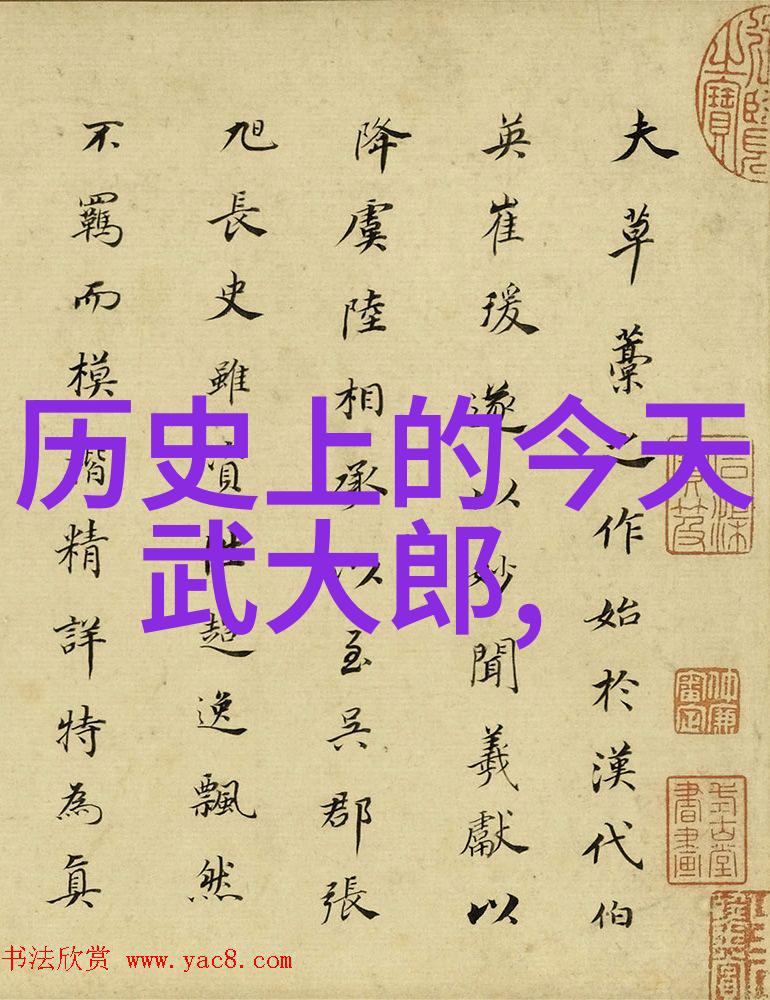 夫草藁之作始於漢代伯
英崔瑗遂以妙聞羲獻以
降虞陸相承以至吳郡張
旭長史雖資性超逸飄然
不羈而模楷精詳特為真
历史上的今天
武大郎,
书法欣赏 www.yac8.com